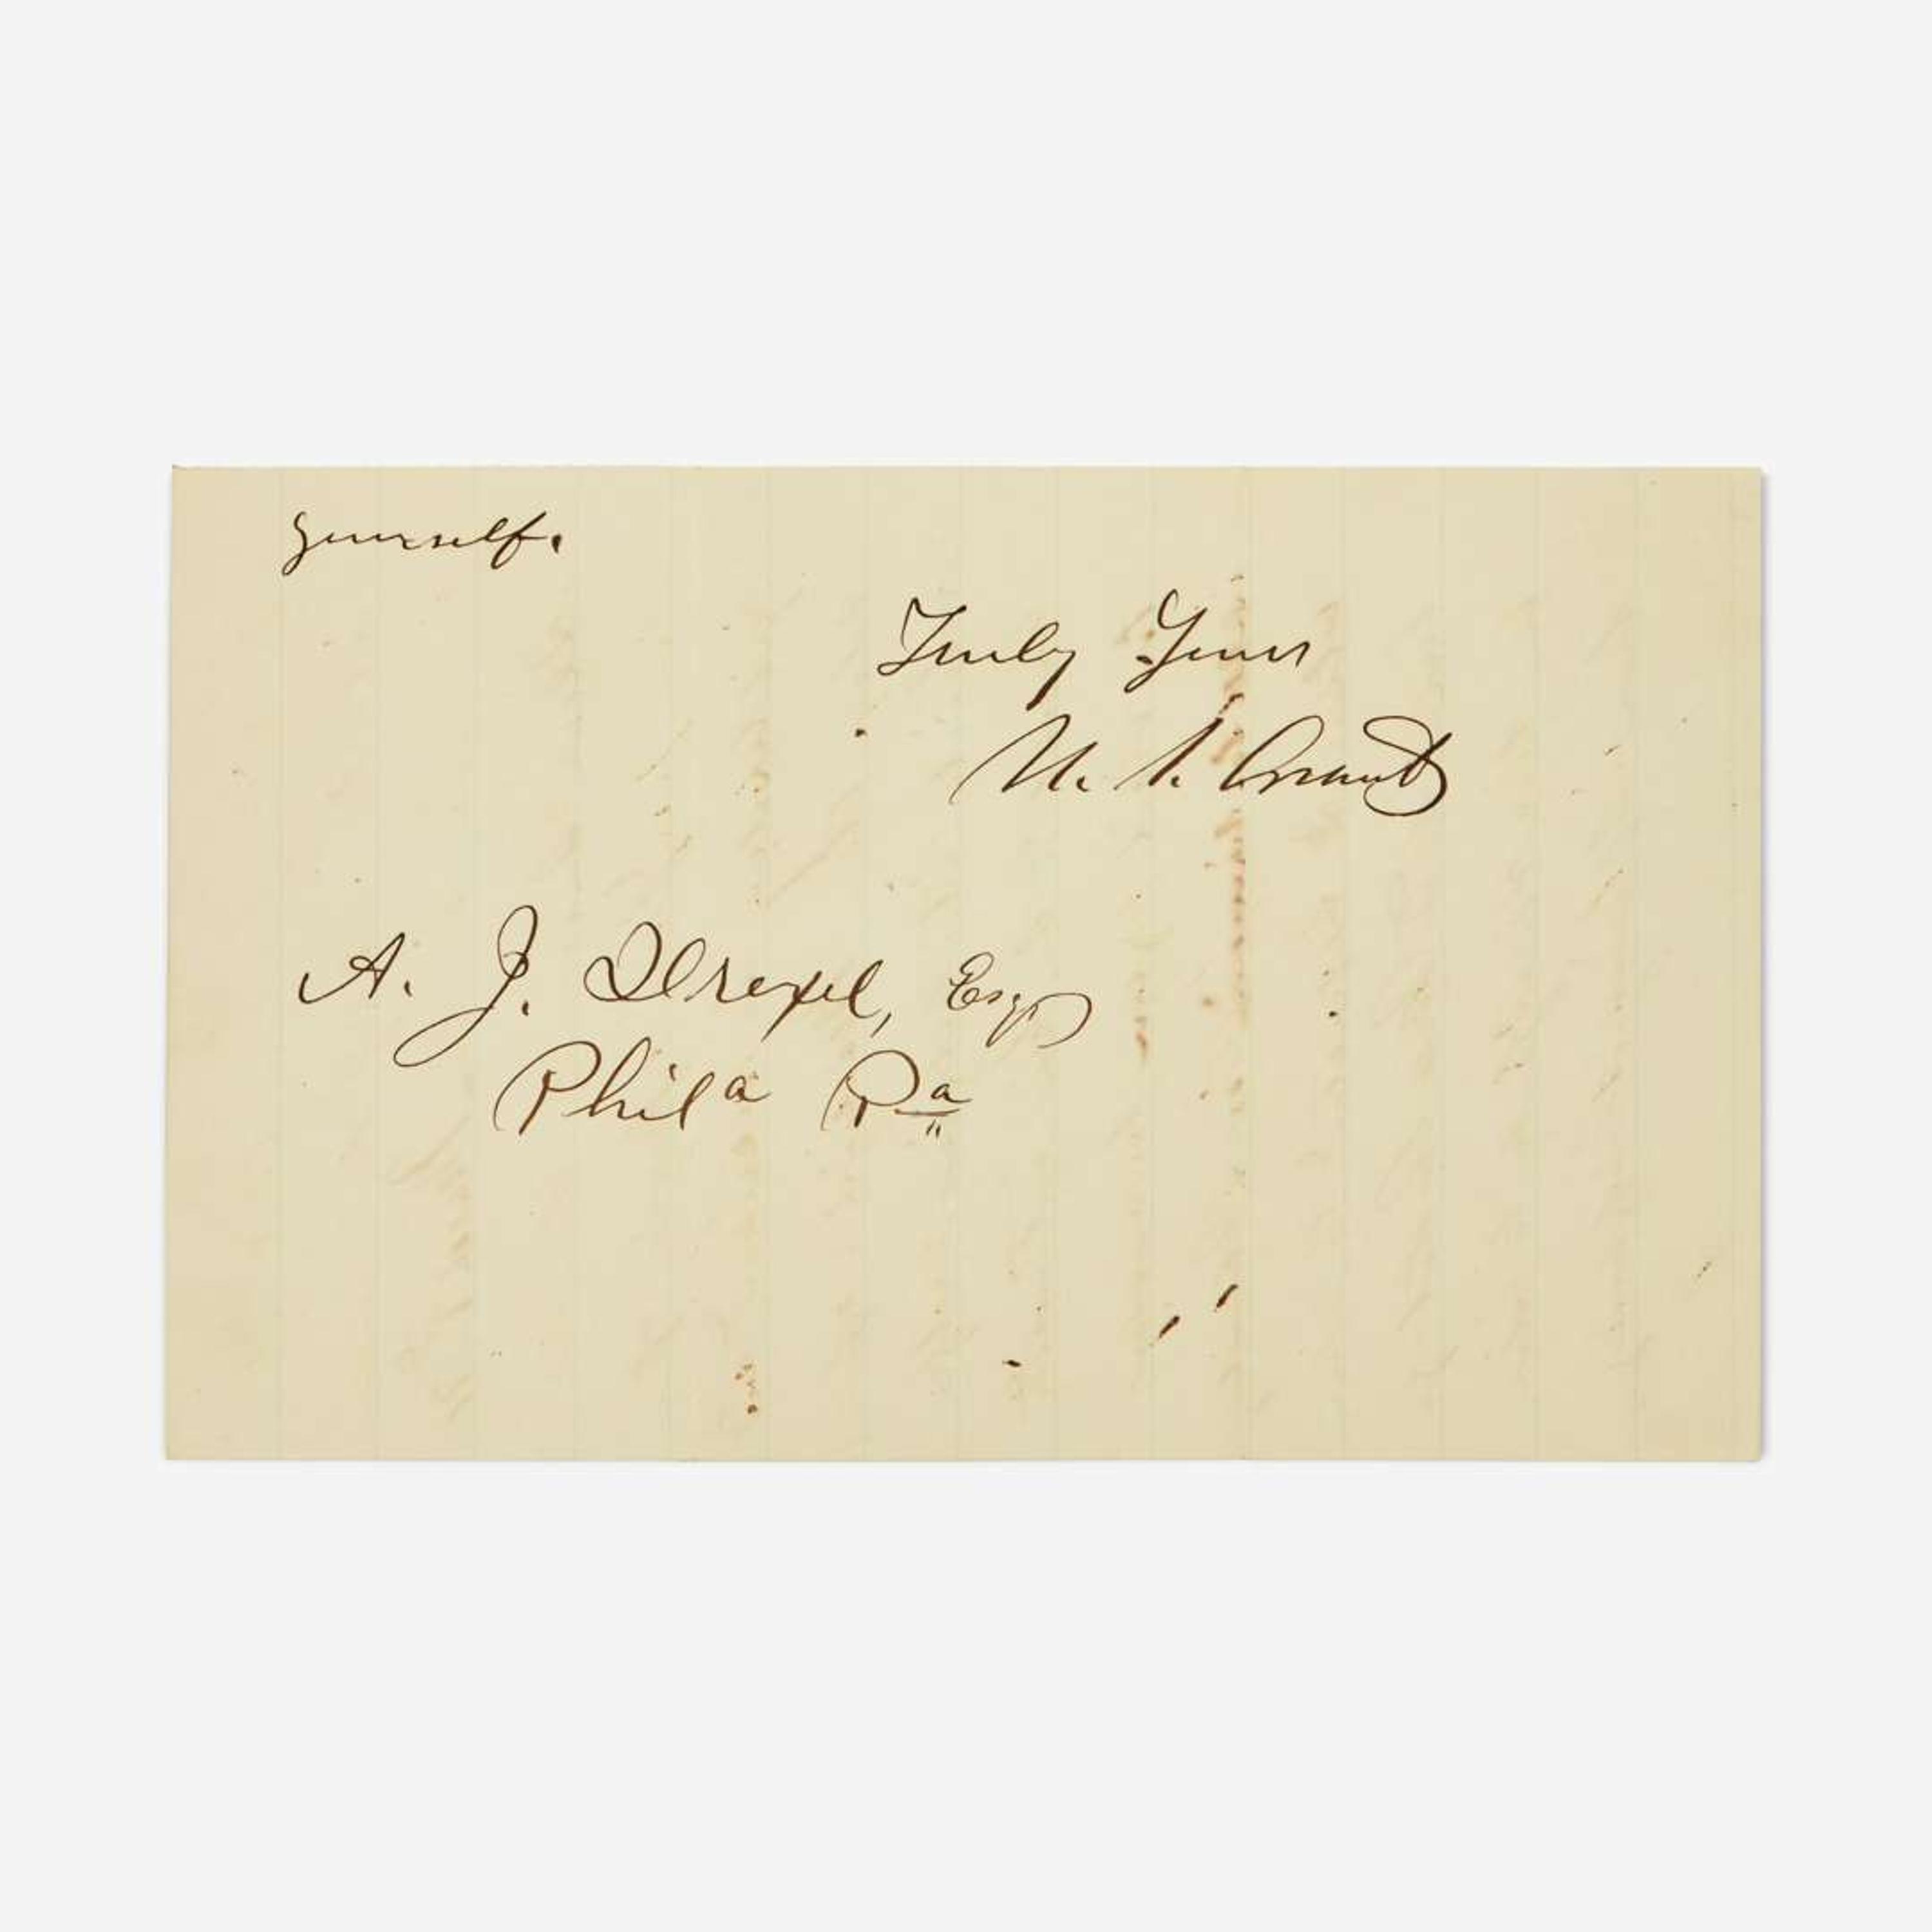 yourself.
Truly Yours
U. S. Grant
A. J. Drexel, Esq
Phila Pa